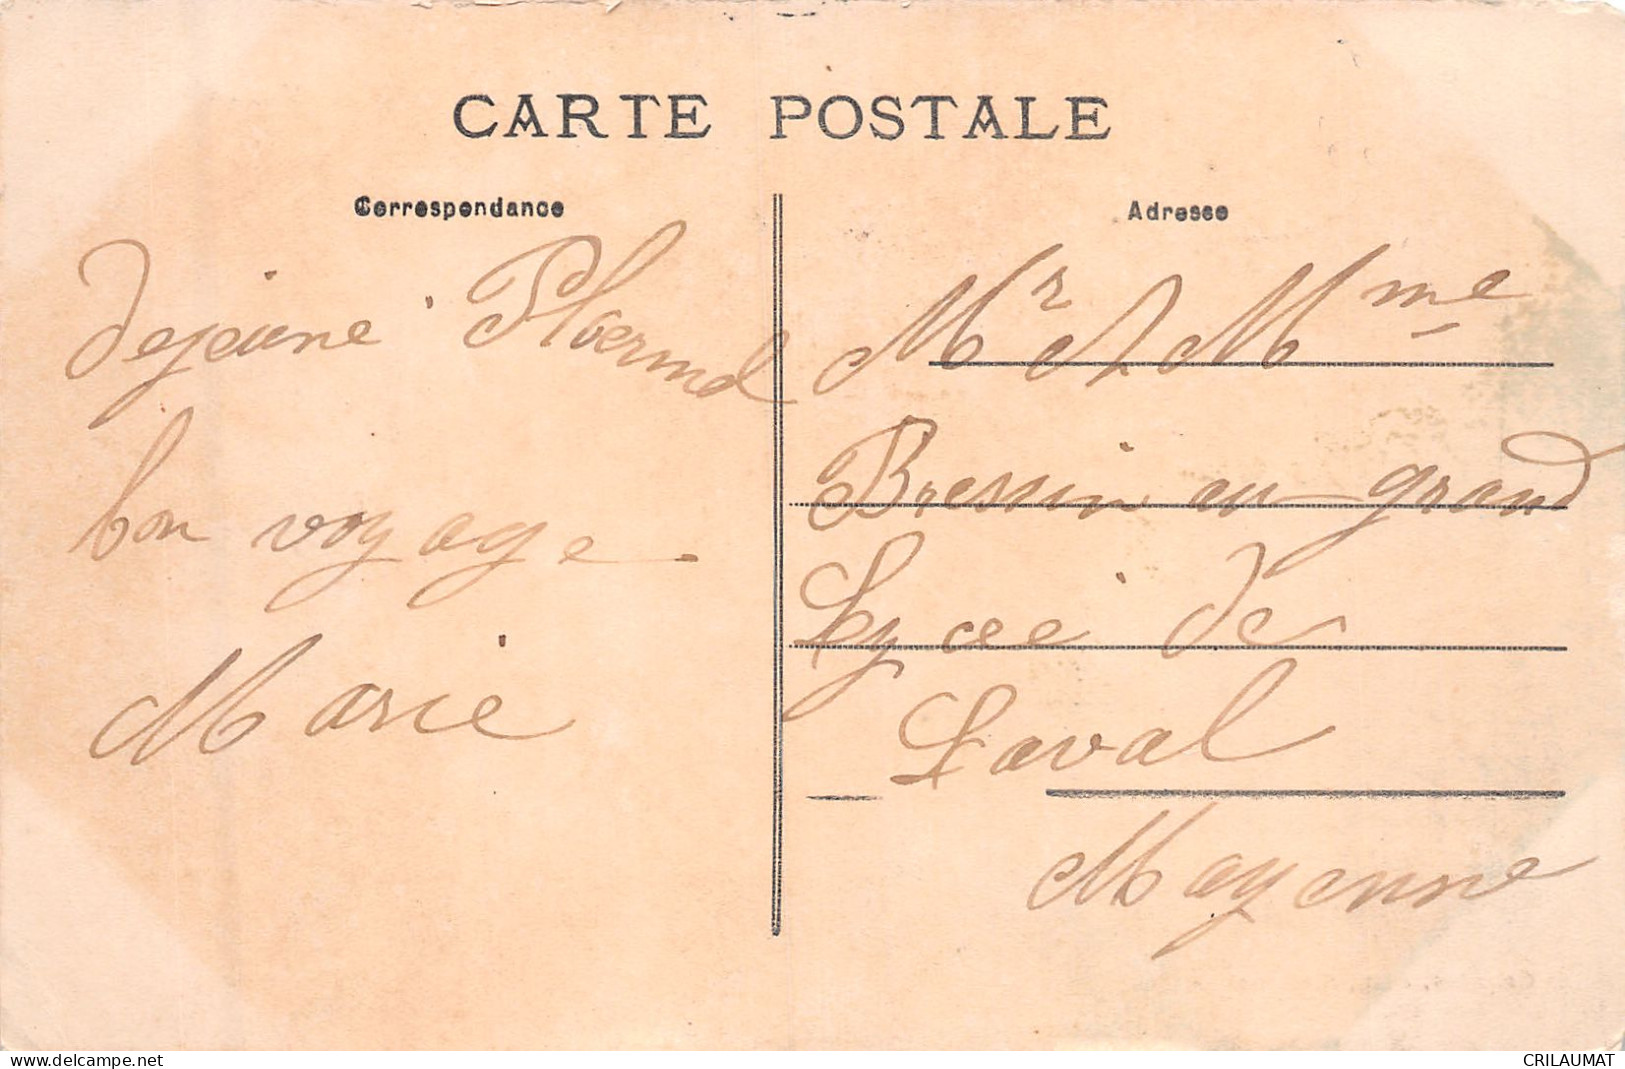 CARTE POSTALE
Correspondance
dejeune Ploermel
bon voyage
Marie
Adresse
Mr & Mme
Bressin au grand
Lycee de
Laval
Mayenne
www.delcampe.net
CRILAUMAT